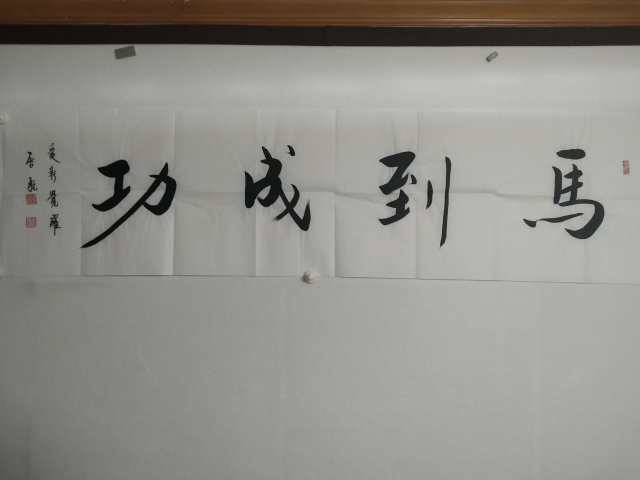 馬到成功
愛新覺羅